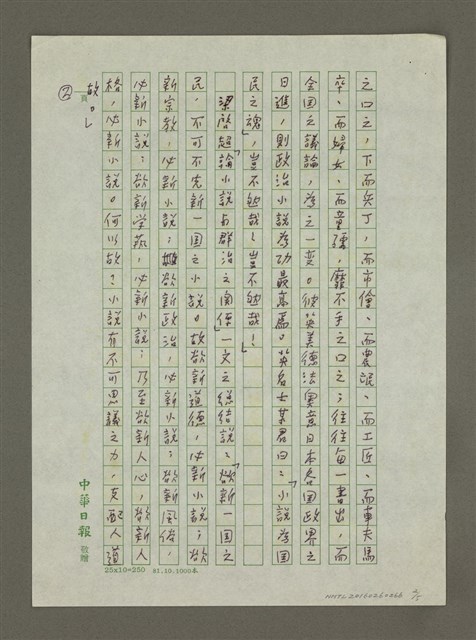 之口之,下而兵丁,而市儈、而農氓、而工匠、而車夫馬
卒、而婦女、而童孺,靡不手之口之;往往每一書出,而
全国之議論,為之一変。彼英美德法奧意日本各国政界之
日進,則政治小說為功最高焉。英名士某君曰:『小說為国
民之魂』,豈不然哉!豈不然哉!」
梁啓超「論小說与群治之関係」一文之総结說:「欲新一国之
民,不可不先新一国之小說。故欲新道德,必新小說;欲
新宗教,必新小說;欲新政治,必新小說;欲新風俗,
必新小說;欲新学藝,必新小說;乃至欲新人心,欲新人
格,必新小說。何以故?小說有不可思議之力,支配人道
故。」
頁
②
中華日報 敬贈
25x10=250 81.10.1000本
NMTL20160260066 2/5